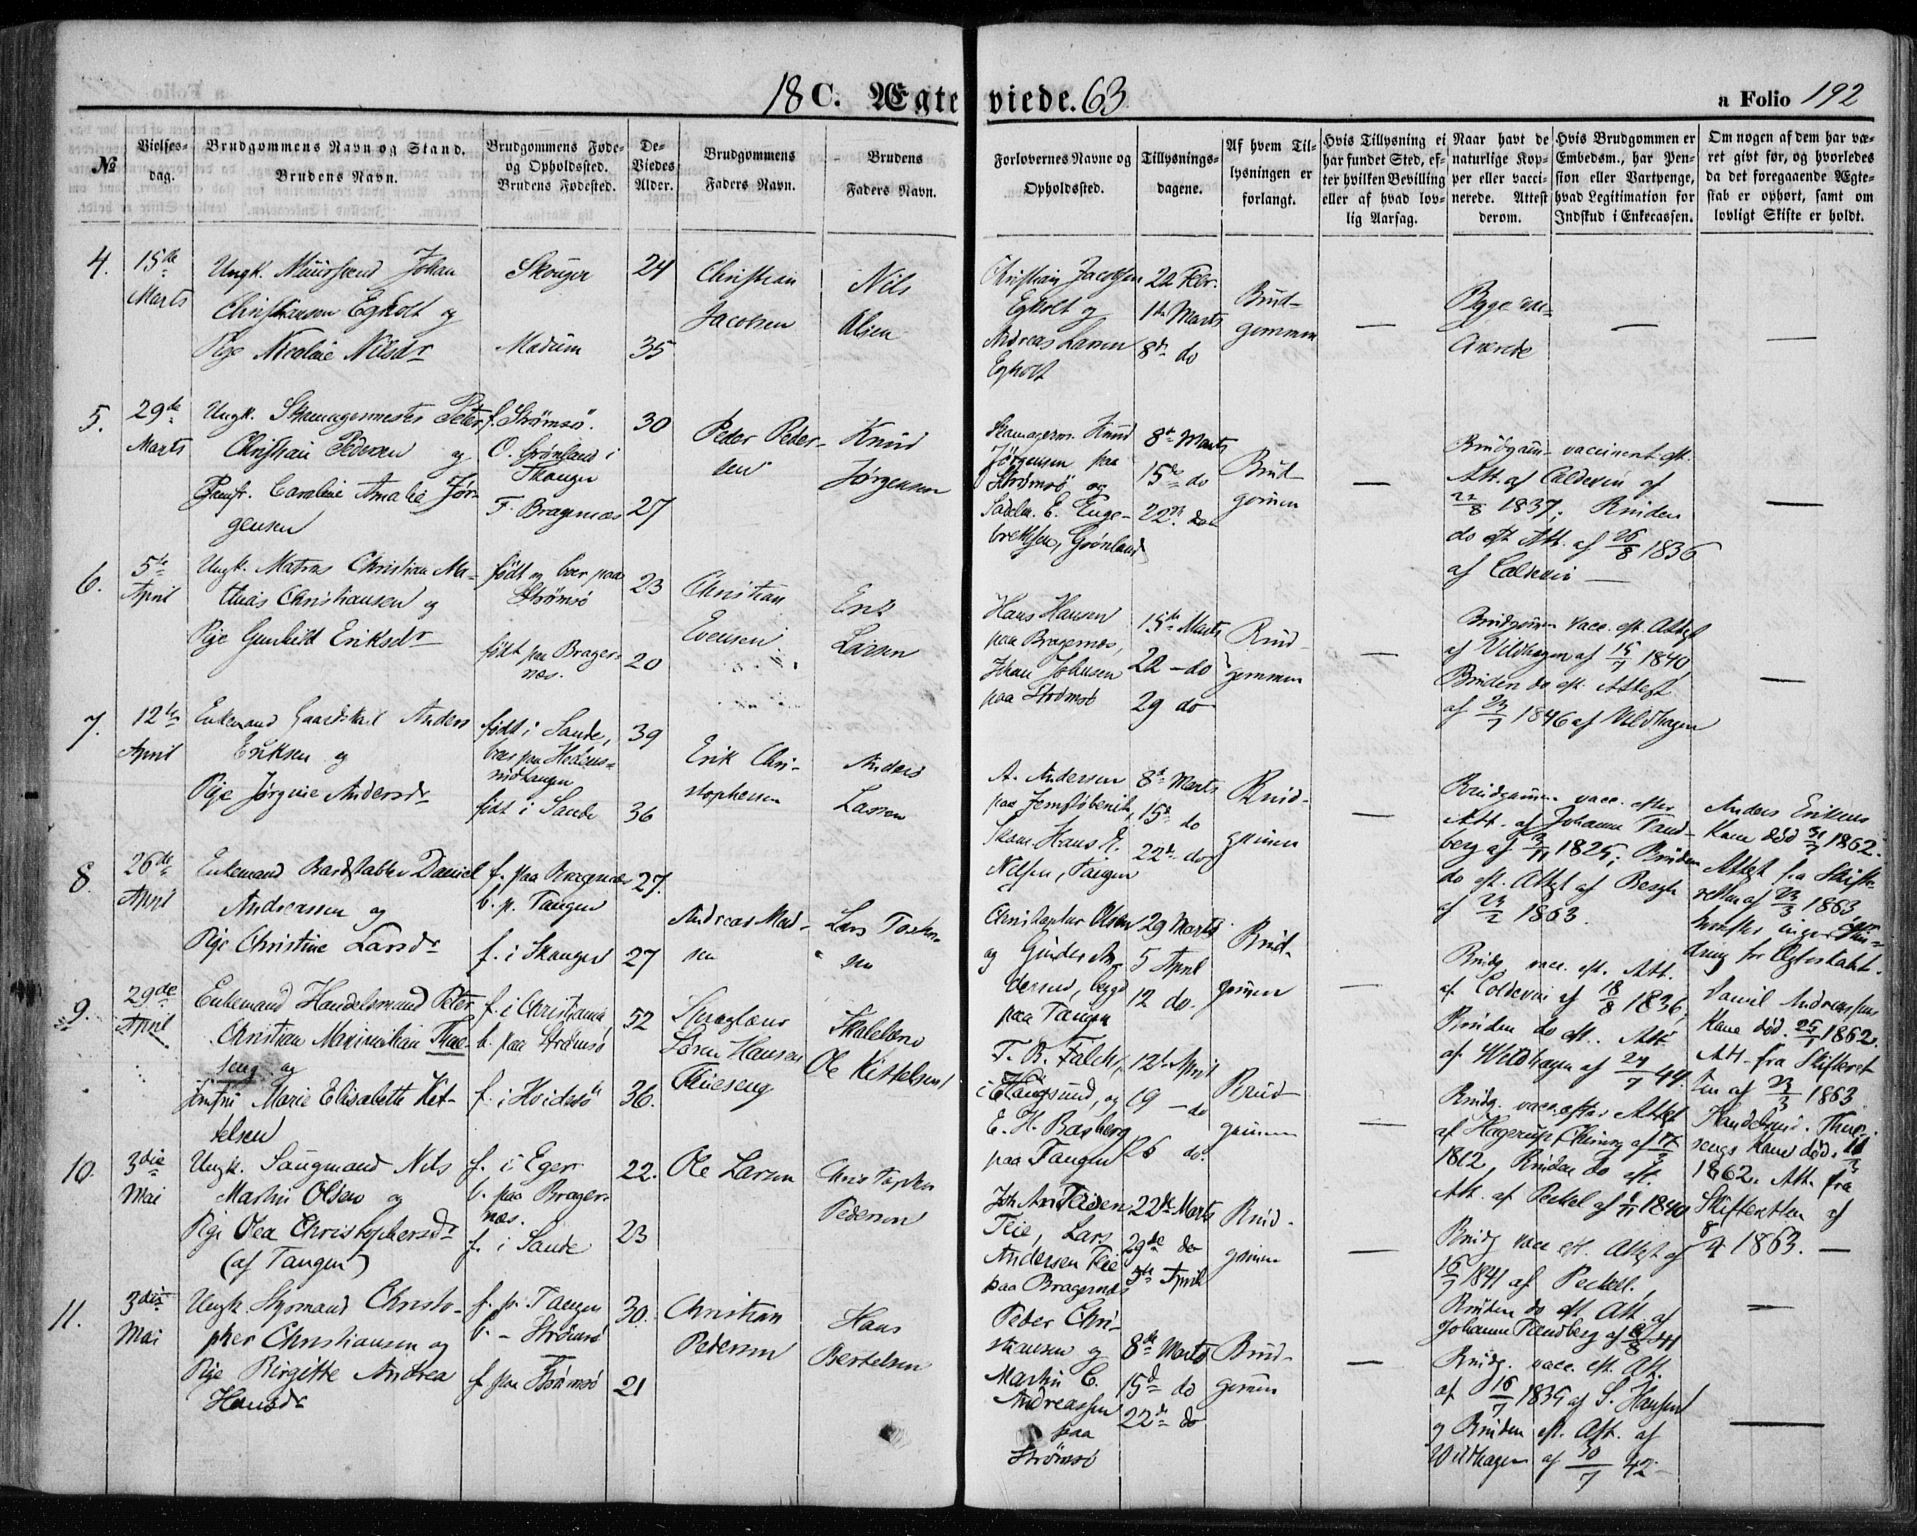 18 C. Ægteviede. 63
a Folio 192
№
Vielsesdag.
Brudgommens Navn og Stand.
Brudens Navn.
Brudgommens Føde-
og Opholdssted.
Brudens Fødested.
De-
Viedes
Alder.
Brudgommens
Faders Navn.
Brudens
Faders Navn.
Forlovernes Navne og
Opholdssted.
Tillysnings-
dagene.
Af hvem Til-
lysningen er
forlangt.
Hvis Tillysning ei
har fundet Sted, ef-
ter hvilken Bevilling
eller af hvad lov-
lig Aarsag.
Naar havt de
naturlige Kop-
per eller vacci-
nerede. Attest
derom.
Hvis Brudgommen er
Embedsm., har Pen-
sion eller Vartpenge,
hvad Legitimation for
Indskud i Enkecassen.
Om nogen af dem har væ-
ret givt før, og hvorledes
da det foregaaende Ægte-
skab er ophørt, samt om
lovligt Skifte er holdt.
4.
15de
Marts
Ungk. Johan
Christiansen Egholt og
Pige Nicoline Nilsdr
Skouger
Modum
24
35
Christian
Jacobsen
Nils
Olsen
Christian Jacobsen
Egholt og
Andreas Larsen
Egholt
22 Febr.
1ste Marts
8de do
Brud-
gommen
—
Begge vac-
—
—
5.
29de
Marts
Ungk. Skomagermester Peter
Christian Pedersen og
Jomfr. Caroline Amalie Jør-
gensen
f. Strømsø.
O. Grønland i
Skouger
F. Bragernæs
30
27
Peder Peder-
sen
Knud
Jørgensen
Skomagerm. Knud
Jørgensen paa
Strømsø og
Sadelm. E. Enge-
brethsen, Grønland
8de Marts
15de do
22de do
Brud
gomen
—
Brudgom vaccineret eft.
Att. af Coldevin af
22/8 1837; Bruden
do eft Att. af 26/8 1836
af Coldevin —
—
6.
5te
April
Ungk. Matros Christian Ma-
thias Christiansen og
Pige Gunhild Eriksdr
født og boer paa
Strømsø
født paa Brager-
næs.
23
20
Christian
Evensen
Erik
Larsen
Hans Hansen
paa Bragernæs,
Johan Johnsen
paa Strømsø
15de Marts
22 — do
29 do
Brud-
gommen
—
Brudgomen vacc. eft. Attest
af Vildhagen af 15/7 1840,
Bruden do eft. Attest
af 23/7 1846 af Vildhagen
—
7.
12te
April
Enkemand Anders
Eriksen og
Pige Jørgine Andersdr
født i Sande,
født i Sande
39
36
Erik Chri-
stophersen
Anders
Larsen
A. Andersen
Skom. Hans E.
Nilsen, Tangen
8de Marts
15de do
22de do
Brud-
gomen
—
Brudgomen vacc. efter
Att. af Johanne Tand-
berg af 1825; Bruden
do eft. Attest af
af 23/2 1863.
Anders Eriksens
Kone død 1862.
Attest fra Skifte-
retten af 23/3 1863
8.
26de
April
Enkemand Daniel
Andreassen og
Pige Christine Larsdr
f. paa Bragernæs
b. p. Tangen
f. i Skouger
27.
27
Andreas Mad-
sen
Lars
Christopher Olsen
og
paa Tangen
29 Marts
5 April
12 do.
Brud-
gomen
—
Brudg vacc. eft. Att.
af Coldevin af 18/8 1836,
Bruden do eft. Att.
af Wildhagen af 27/7 44.
Daniel Andreassens
Kone død 1862.
Att. fra Skifteret-
ten af 23/3 1863
9.
29de
April
Enkemand Handelsmand Peter
Christian Maximilian Thue-
seng og
Jomfru Marie Elisabeth Ket-
telsen
f. i Christiania
b. paa Strømsø
f. i Hvidesö
52
36.
Søren Hansen
Thueseng
Ole Kittelsen
T. B. Falch,
E. H. Basberg
paa Tangen
12te April
19 — do
26 do.
Brud-
gomen
Brudg. vacc. efter Attest
1812, Bruden do eft.
Att. af Peckel af 1840
Handelsmd. Thue-
sengs Kone død
1862. Att. fra
Skifteretten af
8/4 1863. —
10.
3die
Mai
Ungk. Saugmand Nils
Martin Olsen og
Pige Olea Christophersdr
(af Tangen)
f. i Eger
b. paa Brager-
næs.
f. i Sande
22.
23
Ole Larsen
Christopher
Pedersen
Teie, Lars
Andersen Teie
paa Bragernæs
22de Marts
29de do
5te April
Brud-
gomen
—
Brudg vacc eft. Attest af
1841 af Peckel,
Bruden do eft Att. af
Johanne Tandberg af 41
—
11.
3die
Mai
Ungk. Christo-
pher Christiansen og
Pige Birgitte Andrea
Hansdr
f. p. Tangen
b. — Strømsø
f. paa Strømsø
30.
21
Christian
Pedersen
Hans
Bertelsen
Peder Chri-
stiansen og
Martin C.
Andreassen
paa
Strømsø
8de Marts
15de do
22de do
Brud-
gomen
—
Brudg. vacc. eft. Att.
af 16/7 1835 af S. Hansen
og Bruden eft. Att. af
Wildhagen af 30/7 42
—